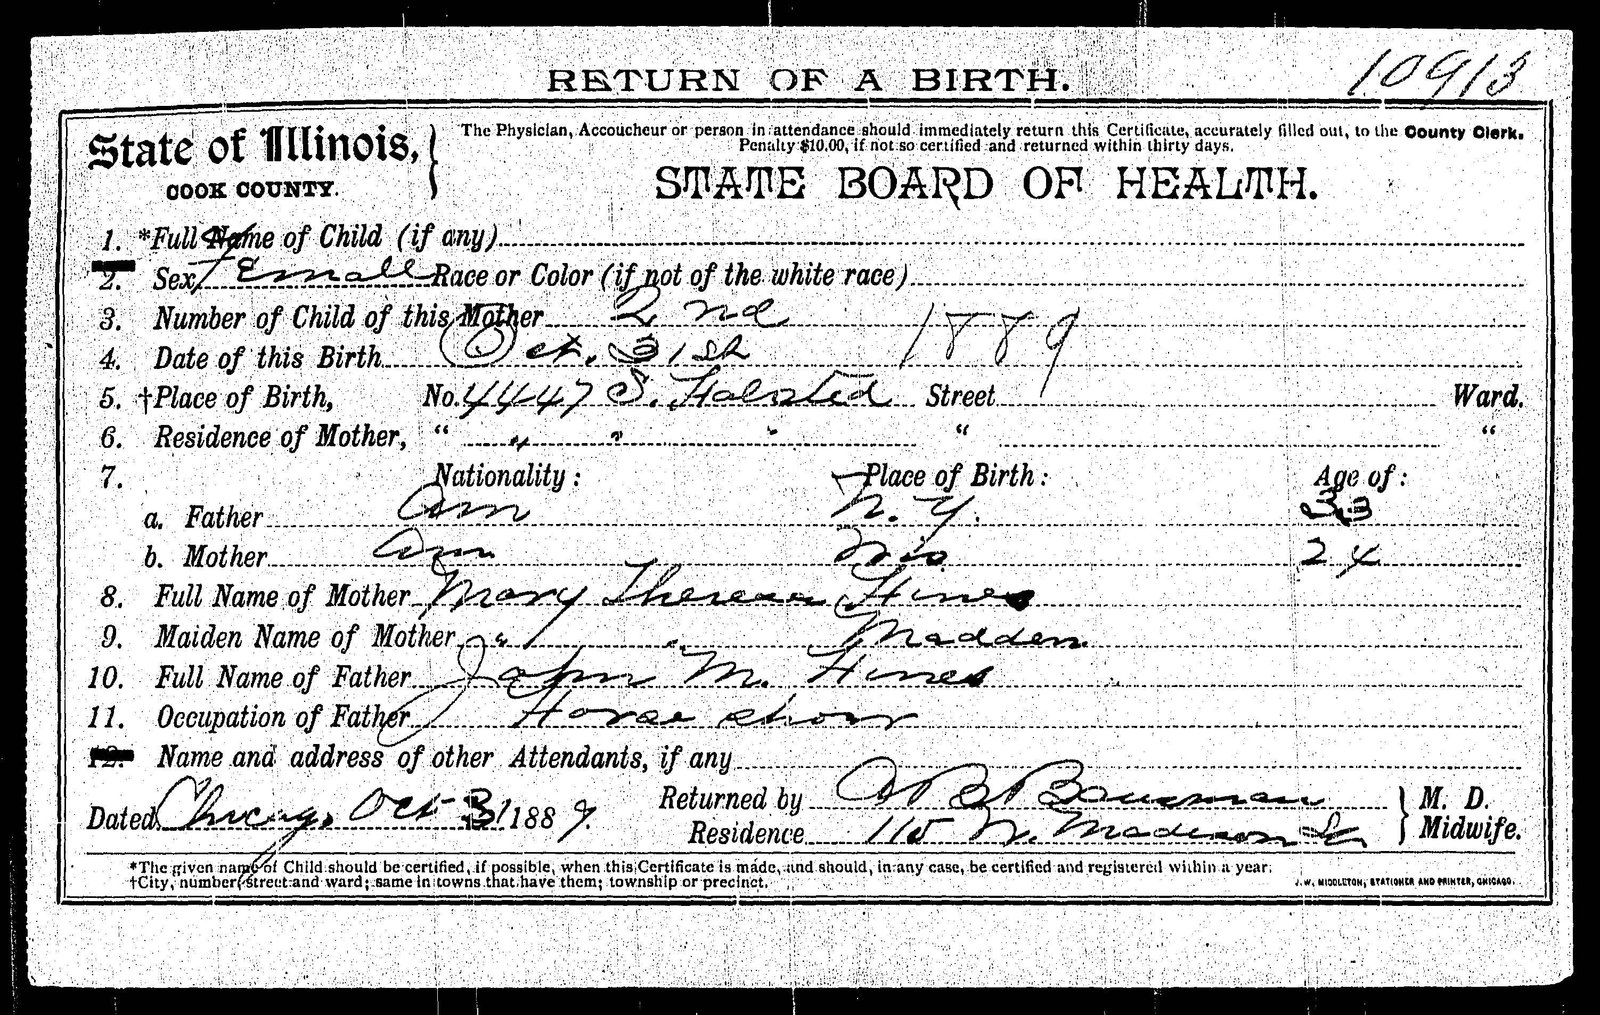 10913
RETURN OF A BIRTH.
State of Illinois,
COOK COUNTY.
The Physician, Accoucheur or person in attendance should immediately return this Certificate, accurately filled out, to the County Clerk.
Penalty $10.00, if not so certified and returned within thirty days.
STATE BOARD OF HEALTH.
1. *Full Name of Child (if any)
2. Sex Femall Race or Color (if not of the white race)
3. Number of Child of this Mother 2nd
4. Date of this Birth Oct. 31st 1889
5. †Place of Birth, No. 4447 S. Halsted Street Ward.
6. Residence of Mother, " " " " " "
7. Nationality: Place of Birth: Age of:
a. Father Am N.Y. 33
b. Mother Am Wis 24
8. Full Name of Mother Mary Theresa Hines
9. Maiden Name of Mother " " Madden.
10. Full Name of Father John M. Hines
11. Occupation of Father Horse shoer
12. Name and address of other Attendants, if any
Dated Chicago, Oct 31 1889.
Returned by Bausman M. D.
Residence 115 W. Madison St Midwife.
*The given name of Child should be certified, if possible, when this Certificate is made, and should, in any case, be certified and registered within a year.
†City, number, street and ward; same in towns that have them; township or precinct.
J. W. MIDDLETON, STATIONER AND PRINTER, CHICAGO.